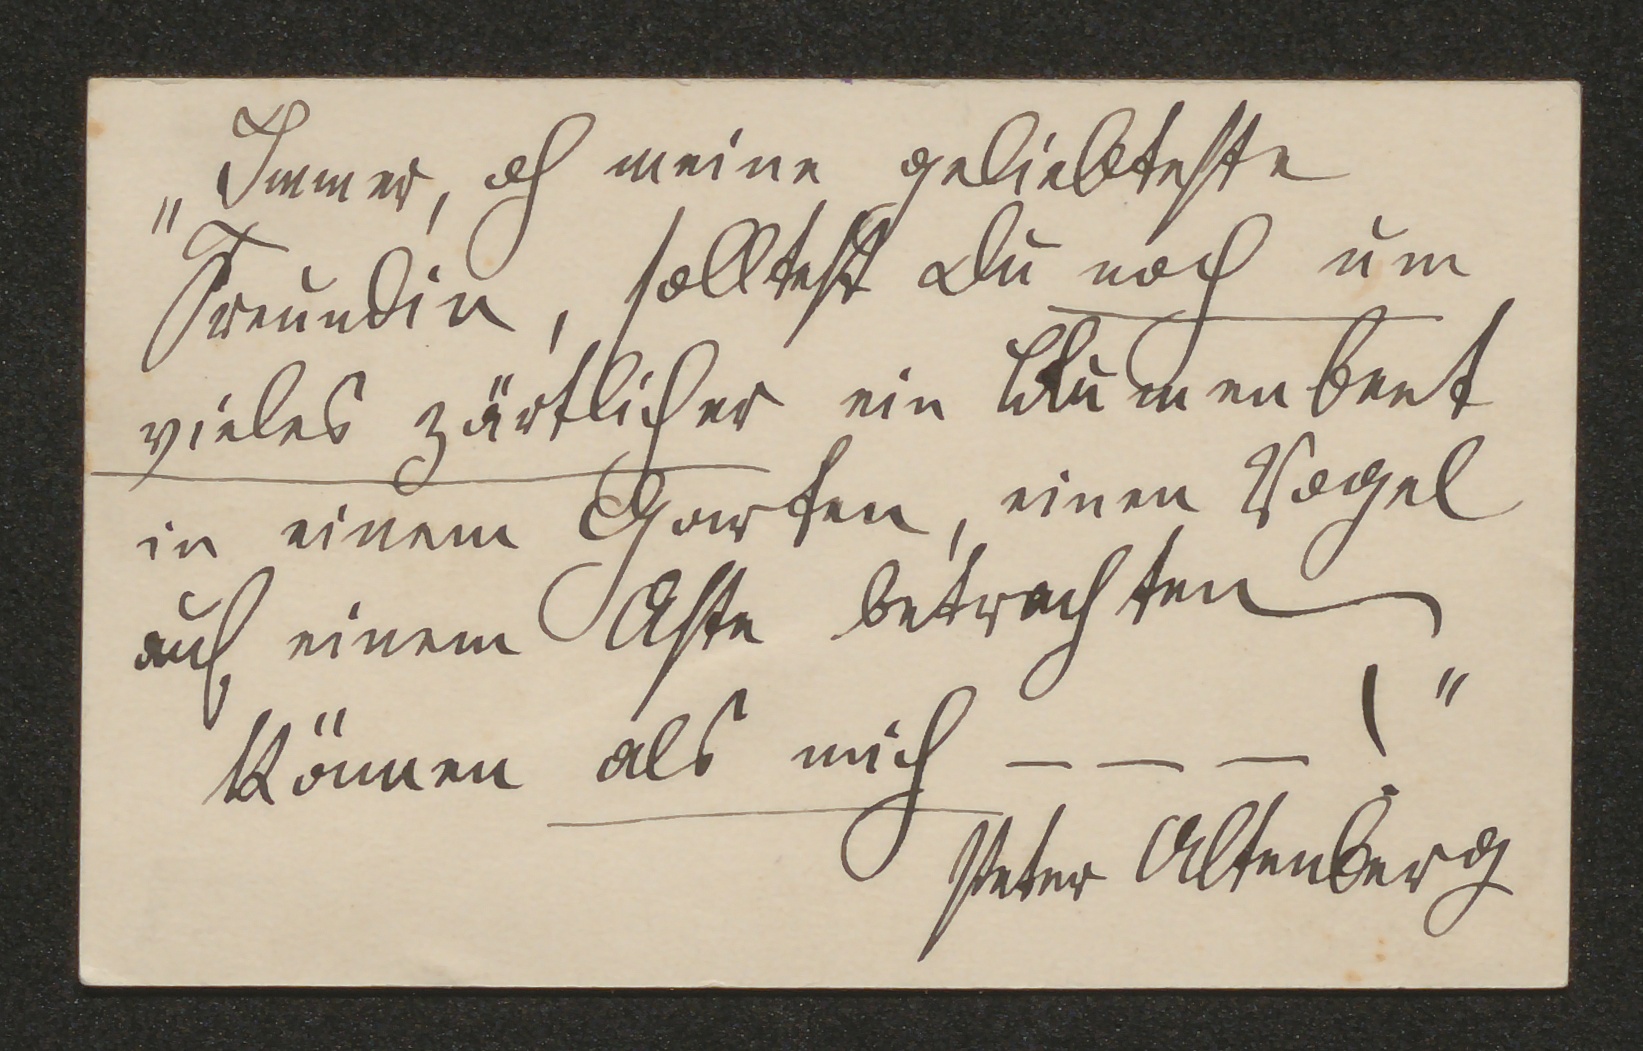 „Immer, oh meine geliebteste
Freundin, solltest Du noch um
vieles zärtlicher ein Blumenbeet
in einem Garten, einen Vogel
auf einem Aste betrachten
können als mich — — — !"
Peter Altenberg